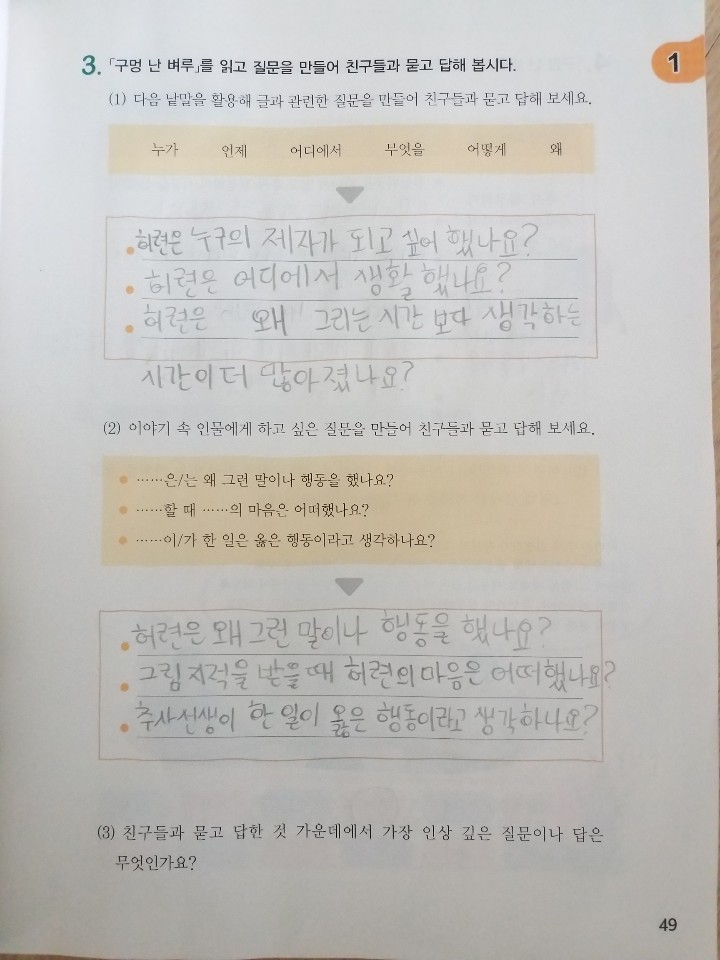 3. 「구멍 난 벼루」를 읽고 질문을 만들어 친구들과 묻고 답해 봅시다.
1
(1) 다음 낱말을 활용해 글과 관련한 질문을 만들어 친구들과 묻고 답해 보세요.
누가 언제 어디에서 무엇을 어떻게 왜
허련은 누구의 제자가 되고 싶어 했나요?
허련은 어디에서 생활했나요?
허련은 왜 그리는 시간 보다 생각하는
시간이 더 많아졌나요?
(2) 이야기 속 인물에게 하고 싶은 질문을 만들어 친구들과 묻고 답해 보세요.
……은/는 왜 그런 말이나 행동을 했나요?
……할 때 ……의 마음은 어떠했나요?
……이/가 한 일은 옳은 행동이라고 생각하나요?
허련은 왜 그런 말이나 행동을 했나요?
그림 지적을 받을 때 허련의 마음은 어떠했나요?
추사선생이 한 일이 옳은 행동이라고 생각하나요?
(3) 친구들과 묻고 답한 것 가운데에서 가장 인상 깊은 질문이나 답은
무엇인가요?
49